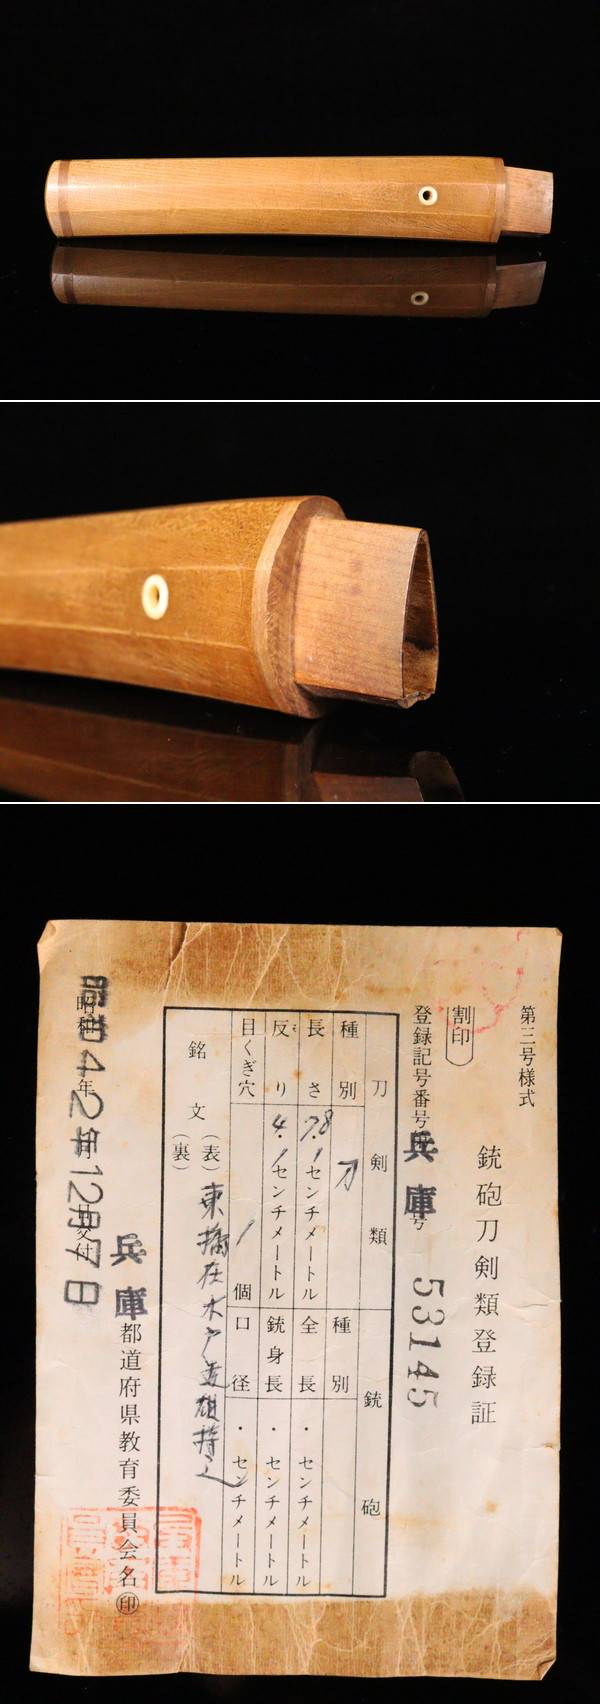 第三号様式
銃砲刀剣類登録証
割印
登録記号番号 兵庫 号 53145
刀剣類
種別 刀
長さ 78.1センチメートル
反り 4.1センチメートル
目くぎ穴 1個
銃砲
種別
全長 ・ センチメートル
銃身長 ・ センチメートル
口径 ・ センチメートル
銘文 (表) 東播在木戸 雄持之
(裏)
兵庫 都道府県教育委員会名 印
昭和42年12月7日 交付